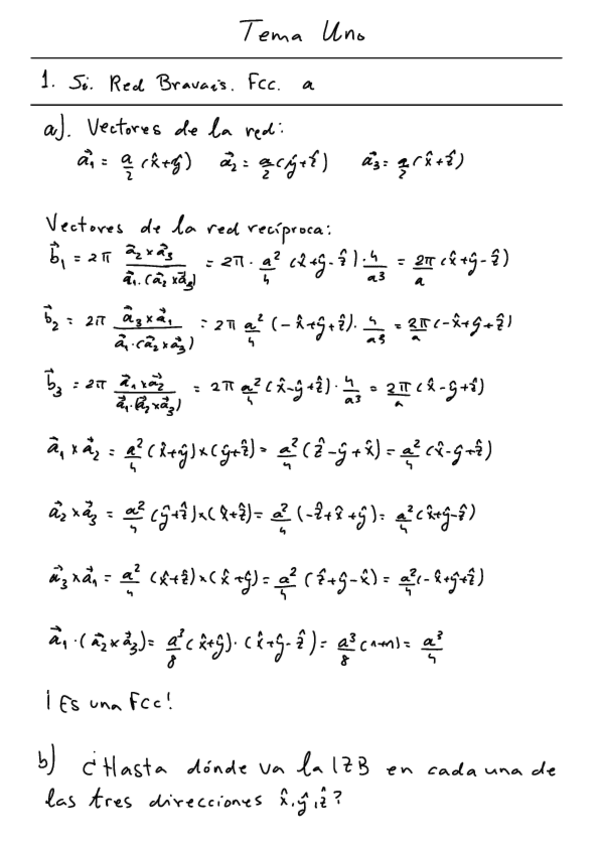 Tema Uno
1. Si. Red Bravais. Fcc. a
a). Vectores de la red:
a⃗₁ = a/2 (x̂+ŷ) a⃗₂ = a/2 (ŷ+ẑ) a⃗₃ = a/2 (x̂+ẑ)
Vectores de la red recíproca:
b⃗₁ = 2π (a⃗₂×a⃗₃)/(a⃗₁·(a⃗₂×a⃗₃)) = 2π · a²/4 (x̂+ŷ-ẑ) · 4/a³ = 2π/a (x̂+ŷ-ẑ)
b⃗₂ = 2π (a⃗₃×a⃗₁)/(a⃗₁·(a⃗₂×a⃗₃)) = 2π a²/4 (-x̂+ŷ+ẑ) · 4/a³ = 2π/a (-x̂+ŷ+ẑ)
b⃗₃ = 2π (a⃗₁×a⃗₂)/(a⃗₁·(a⃗₂×a⃗₃)) = 2π a²/4 (x̂-ŷ+ẑ) · 4/a³ = 2π/a (x̂-ŷ+ẑ)
a⃗₁×a⃗₂ = a²/4 (x̂+ŷ)×(ŷ+ẑ) = a²/4 (ẑ-ŷ+x̂) = a²/4 (x̂-ŷ+ẑ)
a⃗₂×a⃗₃ = a²/4 (ŷ+ẑ)×(x̂+ẑ) = a²/4 (-ẑ+x̂+ŷ) = a²/4 (x̂+ŷ-ẑ)
a⃗₃×a⃗₁ = a²/4 (x̂+ẑ)×(x̂+ŷ) = a²/4 (ẑ+ŷ-x̂) = a²/4 (-x̂+ŷ+ẑ)
a⃗₁·(a⃗₂×a⃗₃) = a³/8 (x̂+ŷ)·(x̂+ŷ-ẑ) = a³/8 (1+1) = a³/4
¡Es una Fcc!
b) ¿Hasta dónde va la 1ZB en cada una de
las tres direcciones x̂,ŷ,ẑ?